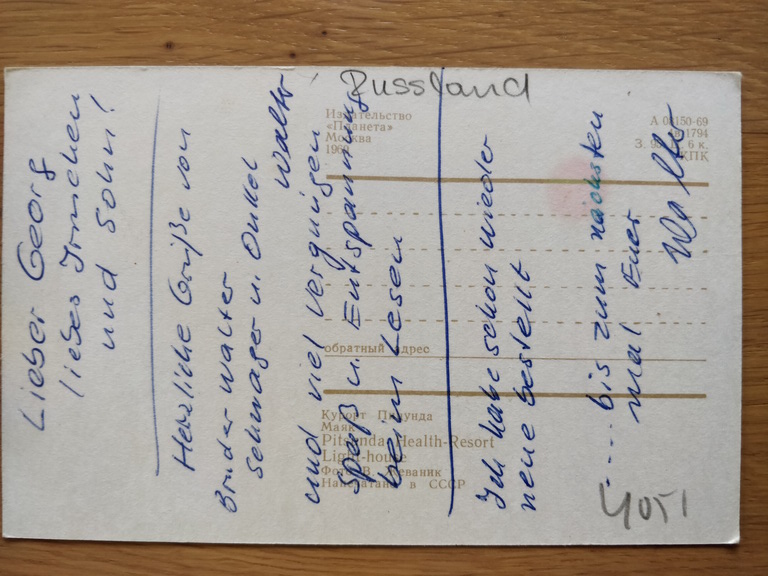 Lieber Georg
liebes Irmchen
und Sohn!
Herzliche Grüße von
Bruder Walter
Schwager u. Onkel
Walter
und viel Vergnügen
Spaß u. Entspannung
beim Lesen
Ich habe schon wieder
neue bestellt
.... bis zum nächsten
mal Euer
Walter
Russland
Издательство
«Планета»
Москва
1969
А 08150-69
1794
6 к.
обратный адрес
Курорт Пицунда
Маяк
Pitsunda Health-Resort
Light-house
Фото В.
Напечатано в СССР
4051